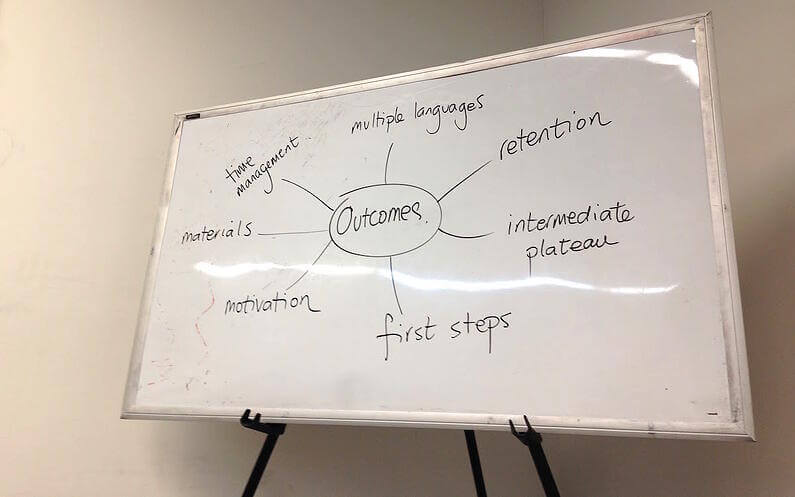 multiple languages
retention
time
management
Outcomes.
materials
intermediate
plateau
motivation
first steps